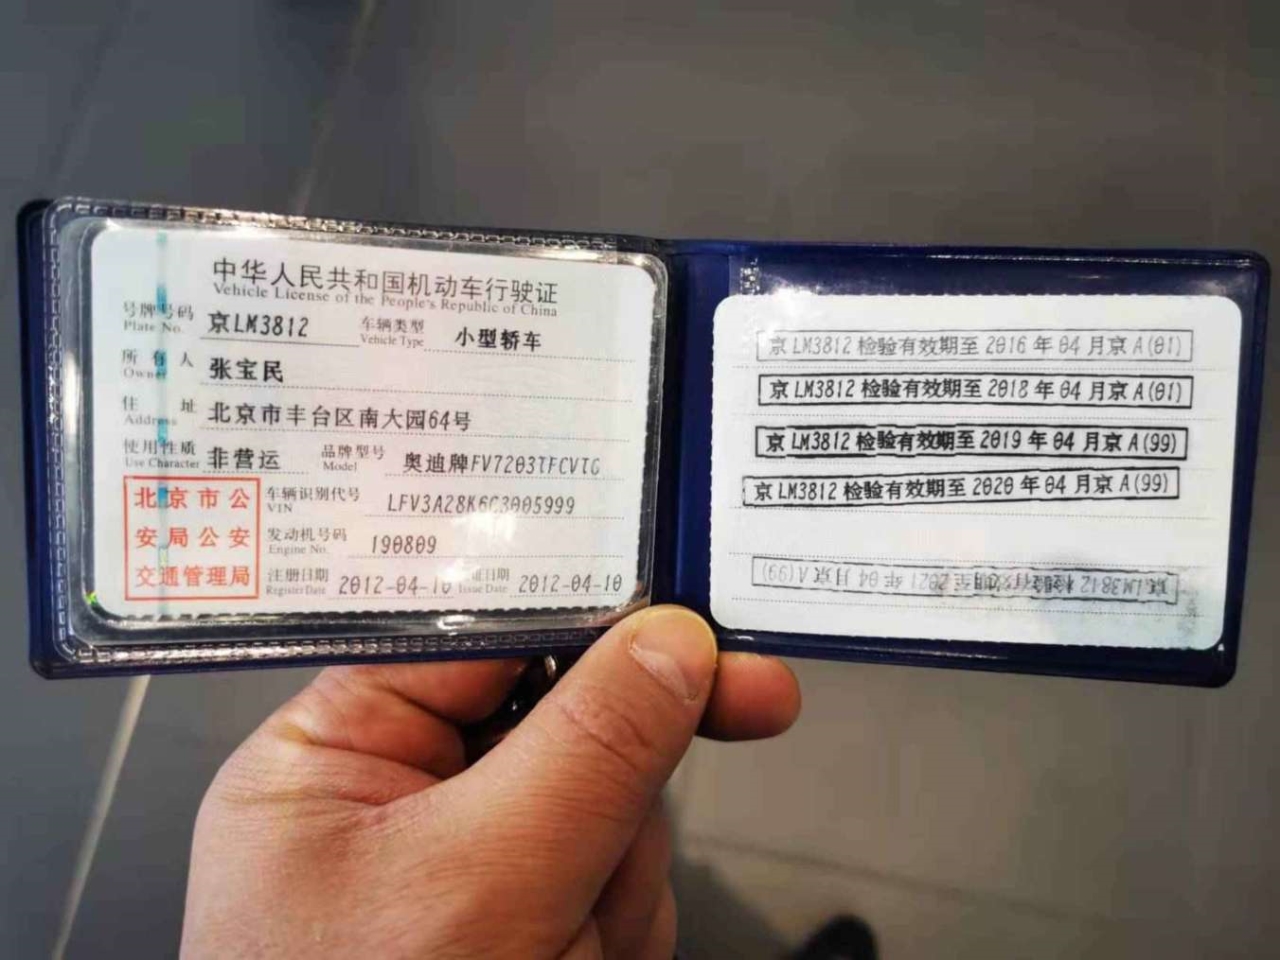 中华人民共和国机动车行驶证
Vehicle License of the People's Republic of China
号牌号码 京LM3812 车辆类型 小型轿车
Plate No. Vehicle Type
所有人 张宝民
Owner
住址 北京市丰台区南大园64号
Address
使用性质 非营运 品牌型号 奥迪牌FV7203TFCVTG
Use Character Model
北京市公
安局公安
交通管理局
车辆识别代号 LFV3A28K6C3005999
VIN
发动机号码 190809
Engine No.
注册日期 2012-04-10 证日期 2012-04-10
Register Date Issue Date
京LM3812检验有效期至2016年04月京A(01)
京LM3812检验有效期至2018年04月京A(01)
京LM3812检验有效期至2019年04月京A(99)
京LM3812检验有效期至2020年04月京A(99)
京LM3812检验有效期至2021年04月京A(99)